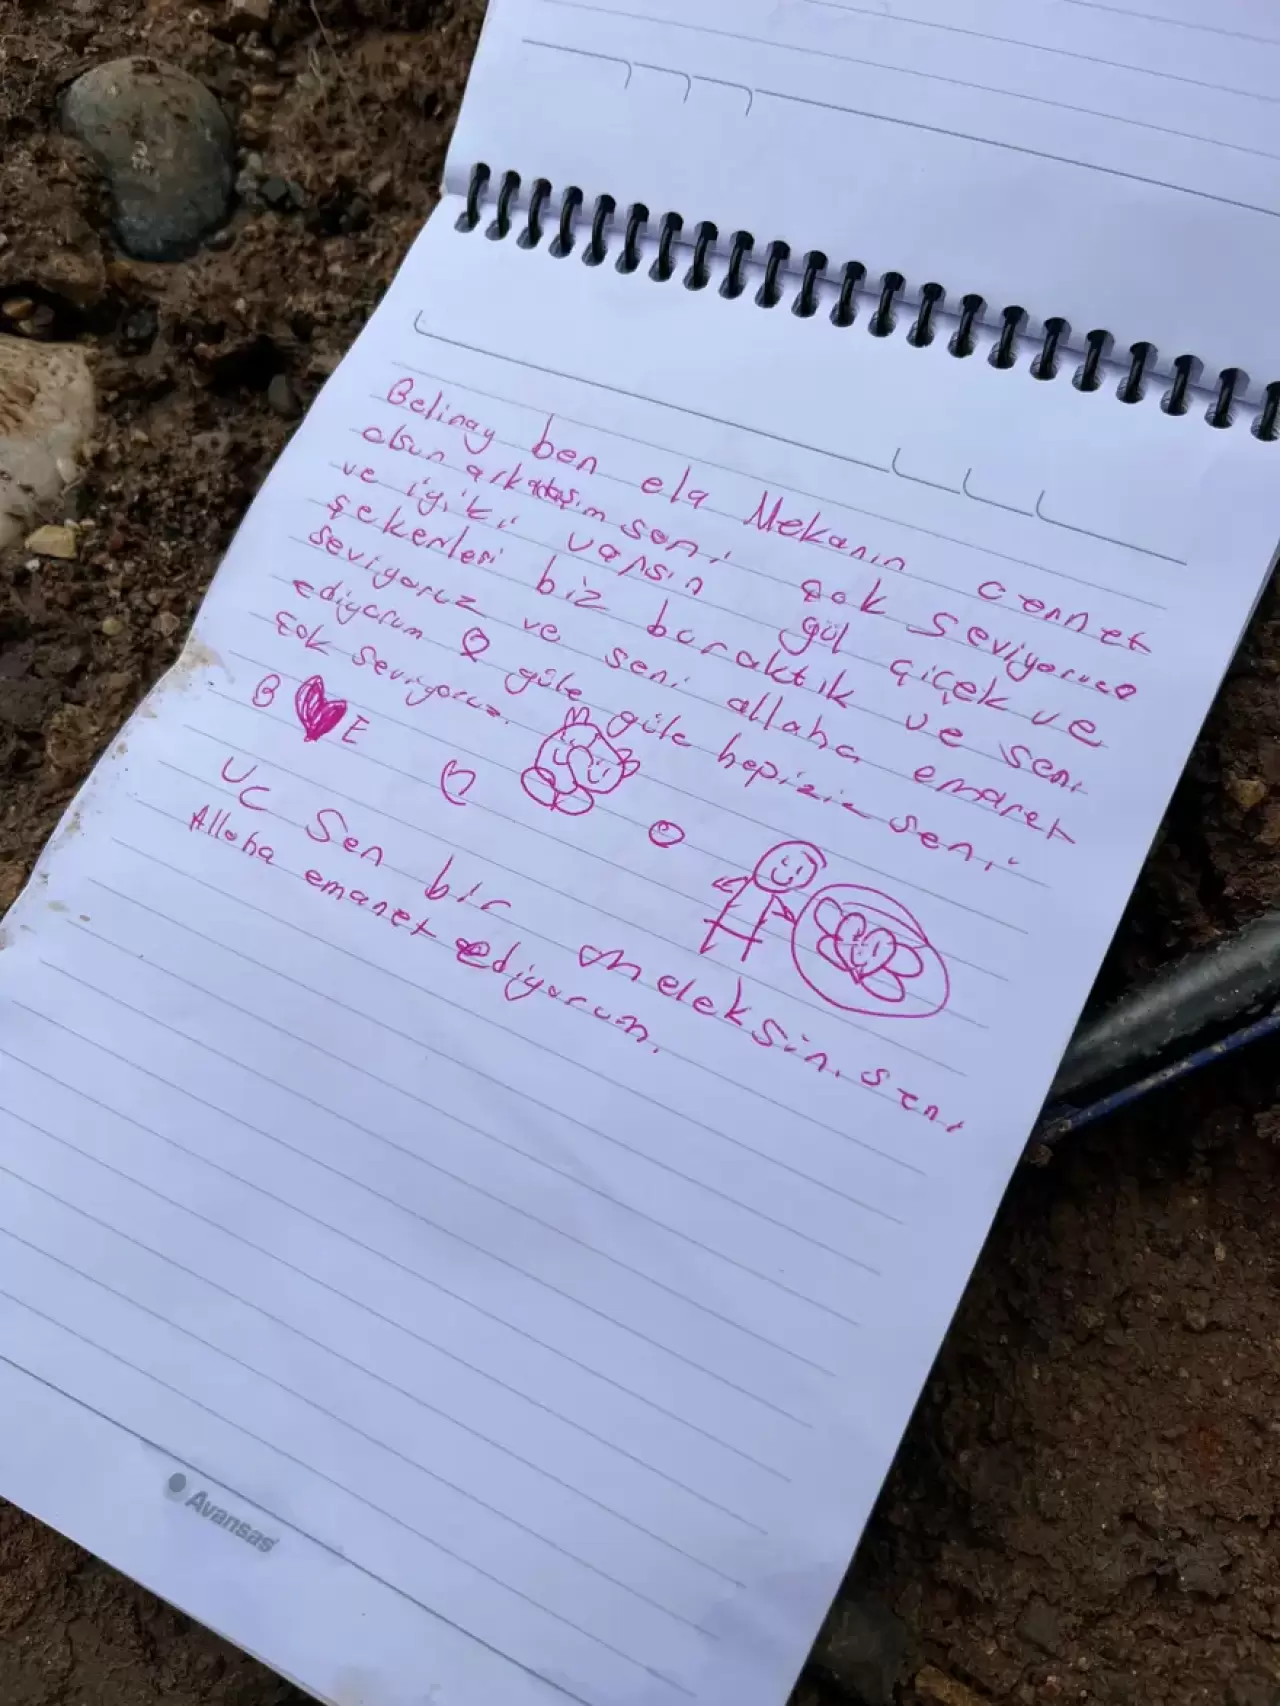 Belinay ben ela Mekanın cennet
olsun arkadaşım seni çok seviyoruz
ve iyiki varsın gül çiçek ve
şekerleri biz buraktık ve seni
seviyoruz ve seni allaha emanet
ediyorum güle güle hepiziz seni
çok seviyoruz.
B E
UC Sen bir meleksin. seni
Allaha emanet ediyorum.
Avansas